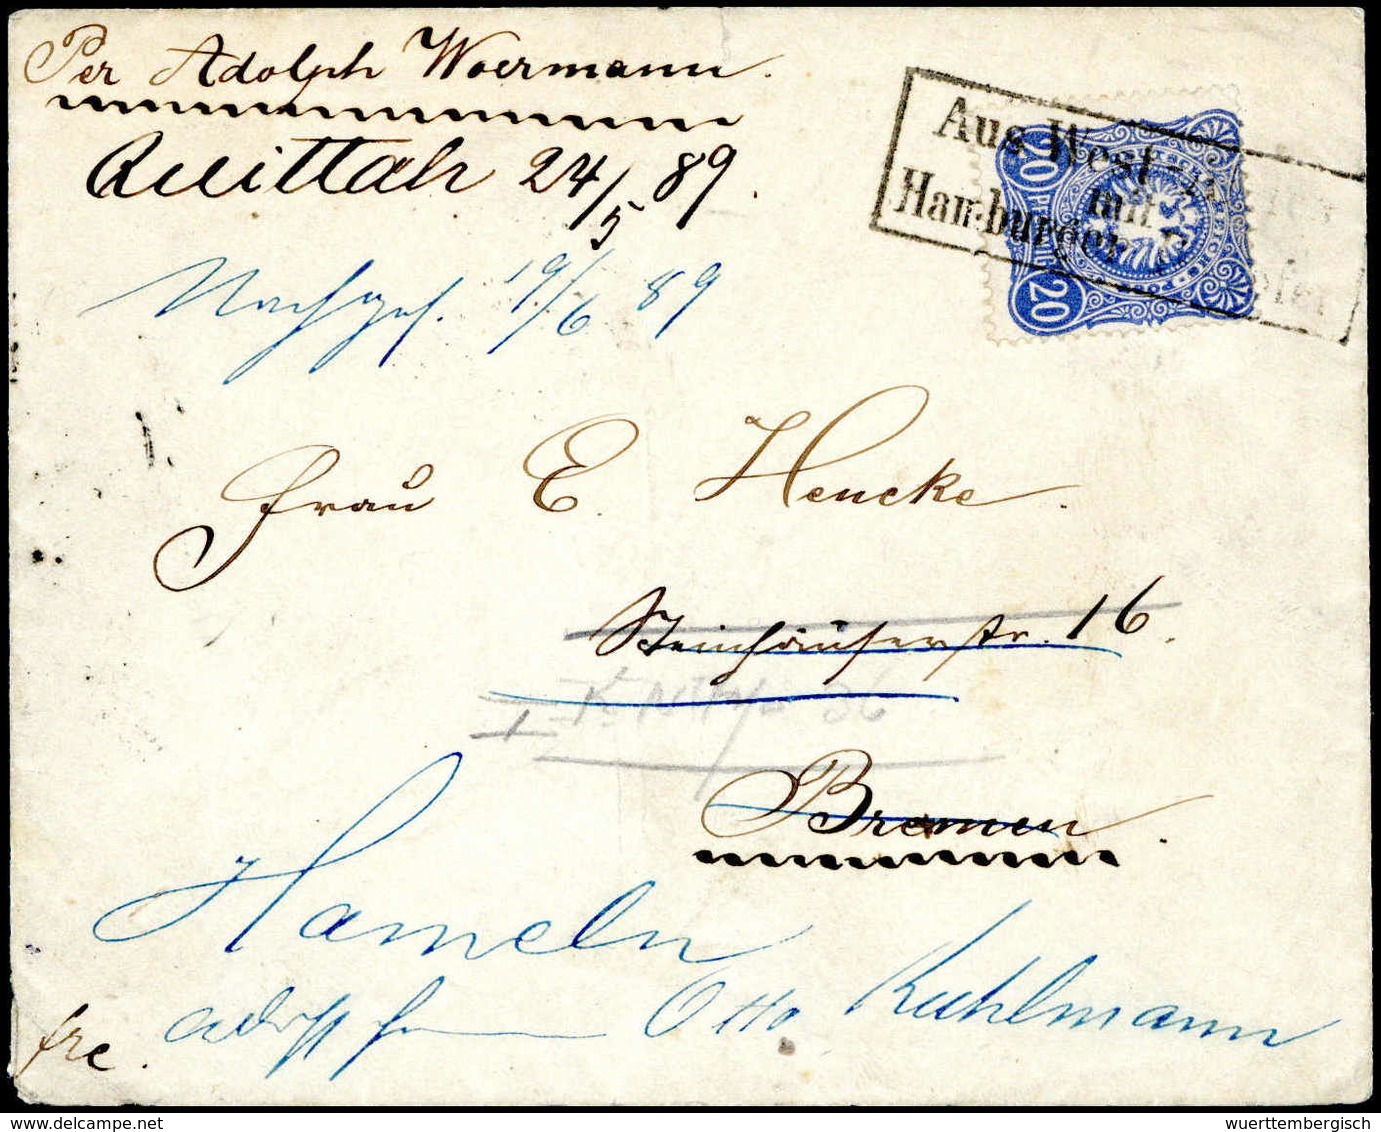 Per Adolph Woermann.
Quittah 24/5 89.
Nachges. 19/6 89
Aus West-
mit
Hamburger
20
20
Frau E. Hencke.
Steinhäuserstr. 16.
Bremen.
Hameln
Otto Kuhlmann
frc.
wuerttembergisch